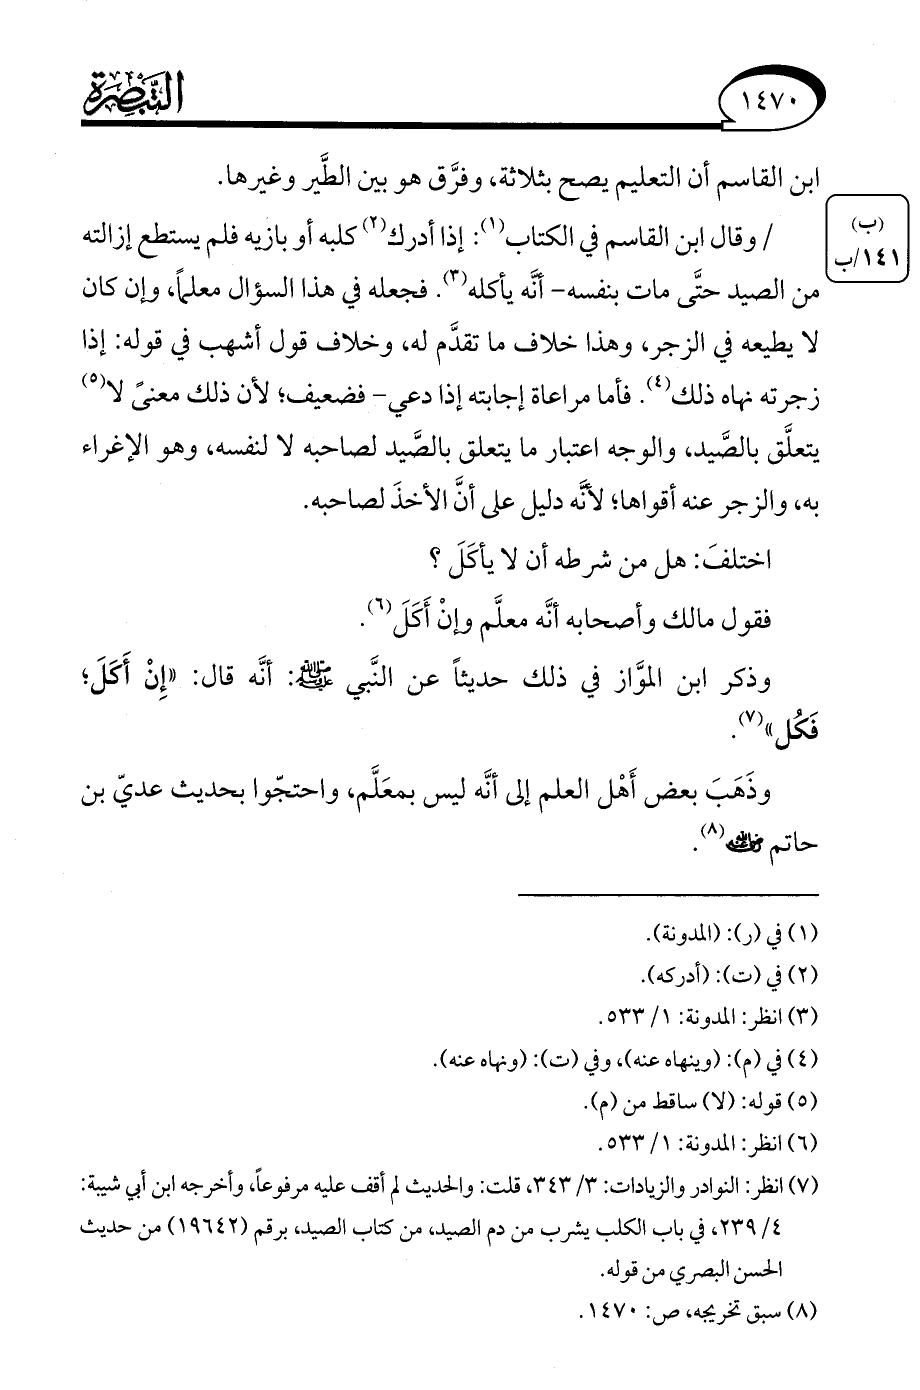 ١٤٧٠
التبصرة
ابن القاسم أن التعليم يصح بثلاثة، وفرَّق هو بين الطَّير وغيرها.
(ب)
١٤١/ب
/ وقال ابن القاسم في الكتاب(١): إذا أدرك(٢) كلبه أو بازيه فلم يستطع إزالته
من الصيد حتَّى مات بنفسه- أنَّه يأكله(٣). فجعله في هذا السؤال معلماً، وإن كان
لا يطيعه في الزجر، وهذا خلاف ما تقدَّم له، وخلاف قول أشهب في قوله: إذا
زجرته نهاه ذلك(٤). فأما مراعاة إجابته إذا دعي- فضعيف؛ لأن ذلك معنىً لا(٥)
يتعلَّق بالصَّيد، والوجه اعتبار ما يتعلق بالصَّيد لصاحبه لا لنفسه، وهو الإغراء
به، والزجر عنه أقواها؛ لأنَّه دليل على أنَّ الأخذَ لصاحبه.
اختلفَ: هل من شرطه أن لا يأكَلَ ؟
فقول مالك وأصحابه أنَّه معلَّم وإنْ أَكَلَ(٦).
وذكر ابن الموَّاز في ذلك حديثاً عن النَّبي ﷺ: أنَّه قال: «إِنْ أَكَلَ؛
فَكُل»(٧).
وذَهَبَ بعض أَهْل العلم إلى أنَّه ليس بمعَلَّم، واحتجّوا بحديث عديّ بن
حاتم رضي الله عنه(٨).
(١) في (ر): (المدونة).
(٢) في (ت): (أدركه).
(٣) انظر: المدونة: ١/ ٥٣٣.
(٤) في (م): (وينهاه عنه)، وفي (ت): (ونهاه عنه).
(٥) قوله: (لا) ساقط من (م).
(٦) انظر: المدونة: ١/ ٥٣٣.
(٧) انظر: النوادر والزيادات: ٣/ ٣٤٣، قلت: والحديث لم أقف عليه مرفوعاً، وأخرجه ابن أبي شيبة:
٤/ ٢٣٩، في باب الكلب يشرب من دم الصيد، من كتاب الصيد، برقم (١٩٦٤٢) من حديث
الحسن البصري من قوله.
(٨) سبق تخريجه، ص: ١٤٧٠.